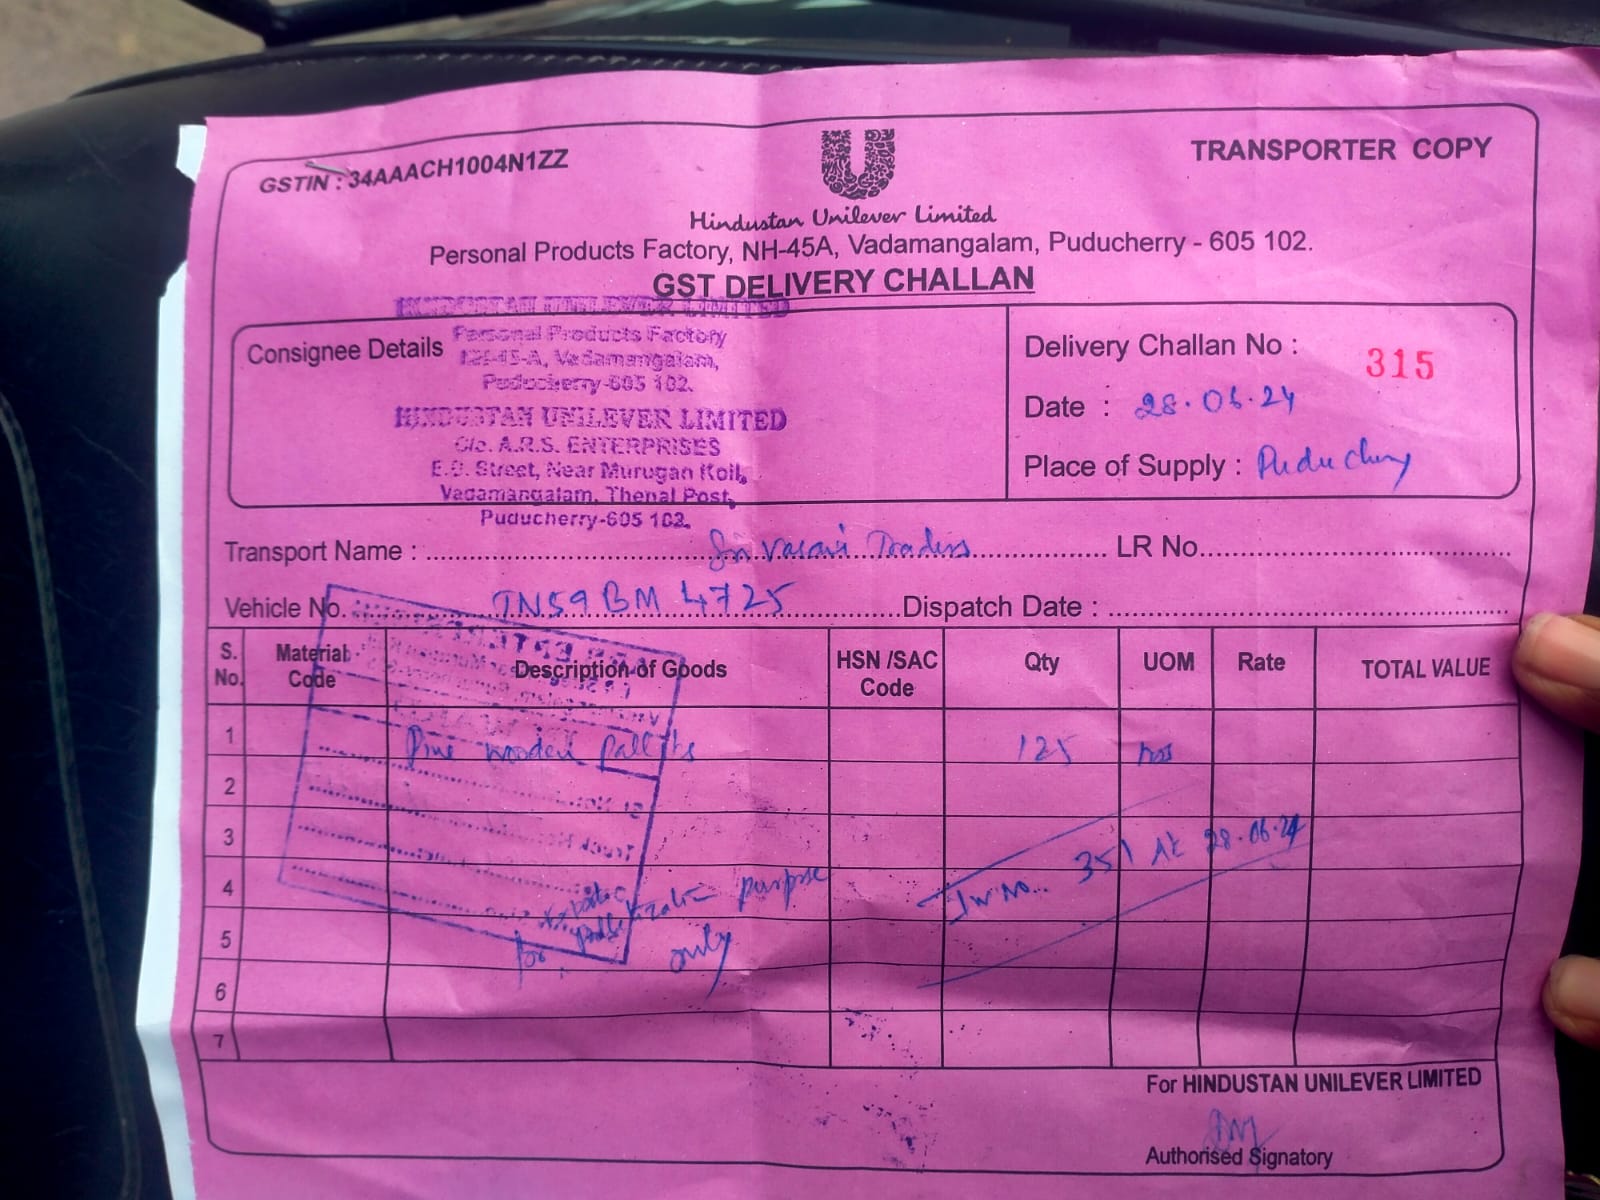 GSTIN : 34AAACH1004N1ZZ
TRANSPORTER COPY
Hindustan Unilever Limited
Personal Products Factory, NH-45A, Vadamangalam, Puducherry - 605 102.
GST DELIVERY CHALLAN
HINDUSTAN UNILEVER LIMITED
Consignee Details
Personal Products Factory
Vadamangalam,
Puducherry-605 102.
HINDUSTAN UNILEVER LIMITED
C/o. A.R.S. ENTERPRISES
Street, Near Murugan Koil,
Vadamangalam, Thenal Post,
Puducherry-605 102.
Delivery Challan No : 315
Date : 28.06.24
Place of Supply : Puducherry
Transport Name : Sri Vasavi Traders LR No.
Vehicle No. TN59 BM 4725 Dispatch Date :
S. No. Material Code Description of Goods HSN /SAC Code Qty UOM Rate TOTAL VALUE
1 Pine wooden pallets 125 nos
2
3
4
5
6
7
for palletization purpose
only
Inv No.. 351 dt 28.06.24
For HINDUSTAN UNILEVER LIMITED
Authorised Signatory